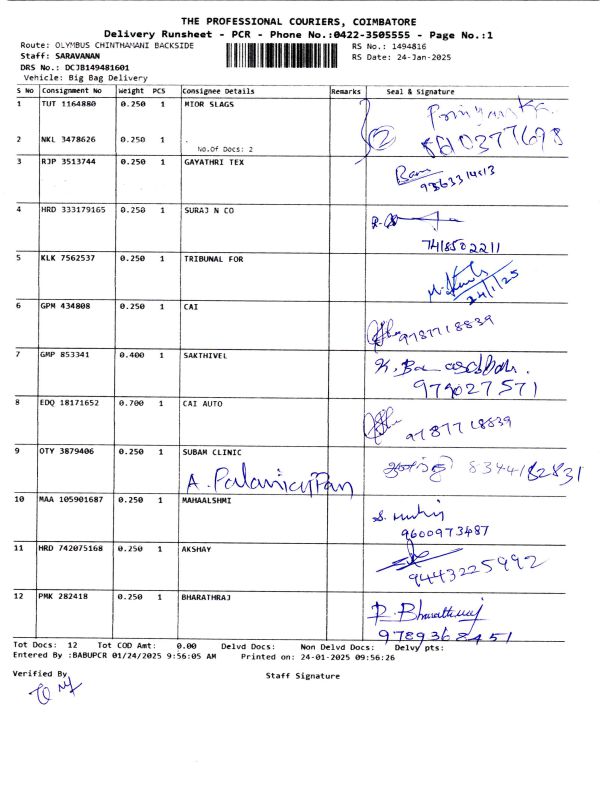 THE PROFESSIONAL COURIERS, COIMBATORE
Delivery Runsheet - PCR - Phone No.:0422-3505555 - Page No.:1
Route: OLYMBUS CHINTHAMANI BACKSIDE RS No.: 1494816
Staff: SARAVANAN RS Date: 24-Jan-2025
DRS No.: DCJB149481601
Vehicle: Big Bag Delivery
S No Consignment No Weight PCS Consignee Details Remarks Seal & Signature
1 TUT 1164880 0.250 1 MIOR SLAGS
2 NKL 3478626 0.250 1 .
No.Of Docs: 2
3 RJP 3513744 0.250 1 GAYATHRI TEX
Ram
4 HRD 333179165 0.250 1 SURAJ N CO
7418502211
5 KLK 7562537 0.250 1 TRIBUNAL FOR
24/1/25
6 GPM 434808 0.250 1 CAI
9787718839
7 GMP 853341 0.400 1 SAKTHIVEL
979027571
8 EDQ 18171652 0.700 1 CAI AUTO
9787718839
9 OTY 3879406 0.250 1 SUBAM CLINIC
8344182831
A. Palanicyppan
10 MAA 105901687 0.250 1 MAHAALSHMI
9600973487
11 HRD 742075168 0.250 1 AKSHAY
9443225992
12 PMK 282418 0.250 1 BHARATHRAJ
P. Bharathraj
9789368451
Tot Docs: 12 Tot COD Amt: 0.00 Delvd Docs: Non Delvd Docs: Delvy pts:
Entered By :BABUPCR 01/24/2025 9:56:05 AM Printed on: 24-01-2025 09:56:26
Verified By Staff Signature